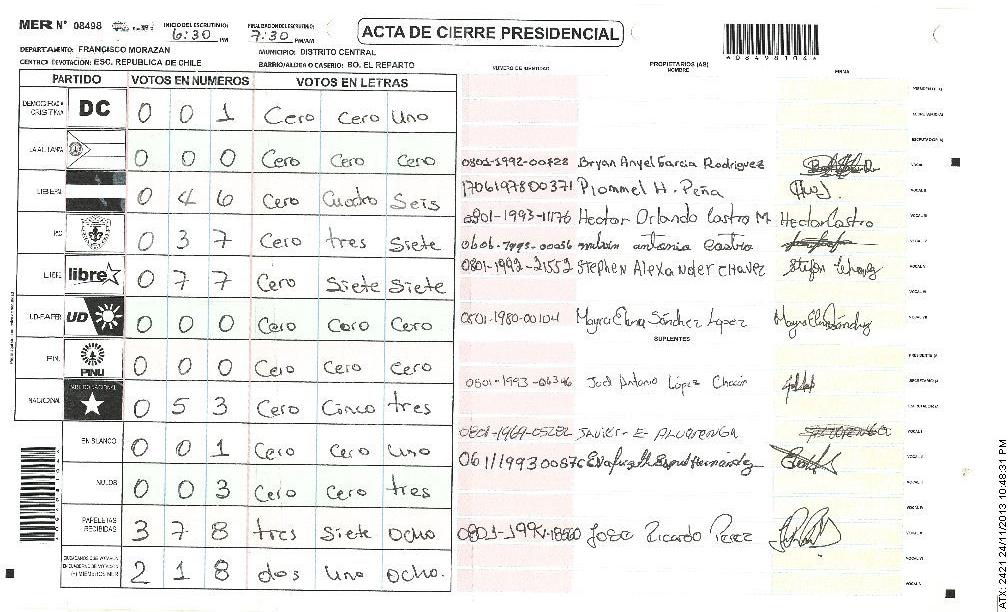 MER N° 08498
INICIO DEL ESCRUTINIO: 6:30 PM
FINALIZACION DEL ESCRUTINIO: 7:30 PM/AM
ACTA DE CIERRE PRESIDENCIAL
DEPARTAMENTO: FRANCISCO MORAZAN
MUNICIPIO: DISTRITO CENTRAL
CENTRO DE VOTACION: ESC. REPUBLICA DE CHILE
BARRIO/ALDEA O CASERIO: BO. EL REPARTO
PARTIDO VOTOS EN NUMEROS VOTOS EN LETRAS
NUMERO DE IDENTIDAD PROPIETARIOS (AS) NOMBRE FIRMA
DEMOCRACIA CRISTIANA DC 0 0 1 Cero Cero Uno
0 0 0 Cero Cero Cero
0801-1992-00728 Bryan Anyel Garcia Rodriguez
0 4 6 Cero Cuatro Seis
1706197800371 Rommel H. Peña
0801-1993-11176 Hector Orlando Castro M Hector Castro
0 3 7 Cero tres Siete
antonia Castro
LIBRE libre 0 7 7 Cero Siete Siete
0801-1992-21552 Stephen Alexander Chavez
UD 0 0 0 Cero Cero Cero
0801-1980-00104 Mayra Elena Sánchez López
SUPLENTES
PINU 0 0 0 Cero Cero Cero
0801-1993-06346 Joel Antonio López Chacón
NACIONAL PARTIDO NACIONAL 0 5 3 Cero Cinco tres
0801-1969-05282 JAVIER-E-ALVARENGA
EN BLANCO 0 0 1 Cero Cero Uno
NULOS 0 0 3 Cero Cero tres
PAPELETAS RECIBIDAS 3 7 8 tres Siete Ocho
Jose Ricardo Perez
2 1 8 dos Uno Ocho.
ATX: 2421 24/11/2013 10:48:31 PM